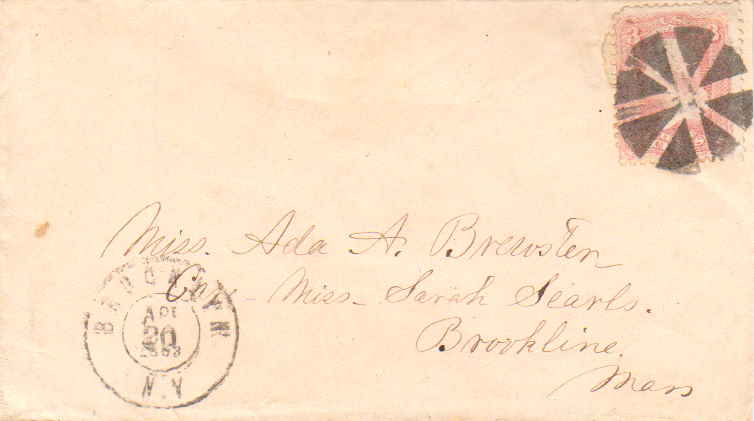 3
Miss. Ada A. Brewster
Care Miss. Sarah Searls.
Brookline.
Mass
BROOKLYN
APR
20
1863
N.Y.